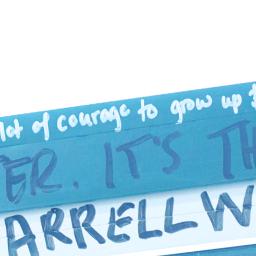 lot of courage to grow up
ER. IT'S TH
ARRELLW